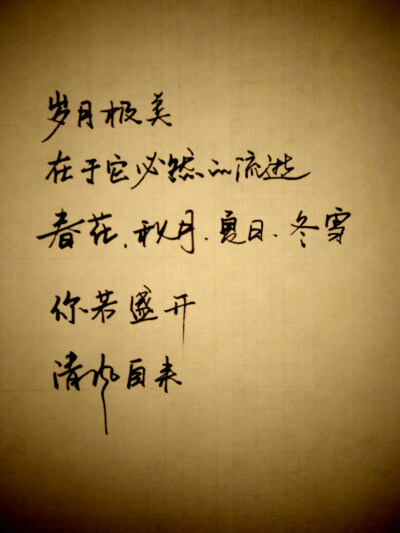 岁月极美
在于它必然的流逝
春花、秋月、夏日、冬雪
你若盛开
清风自来